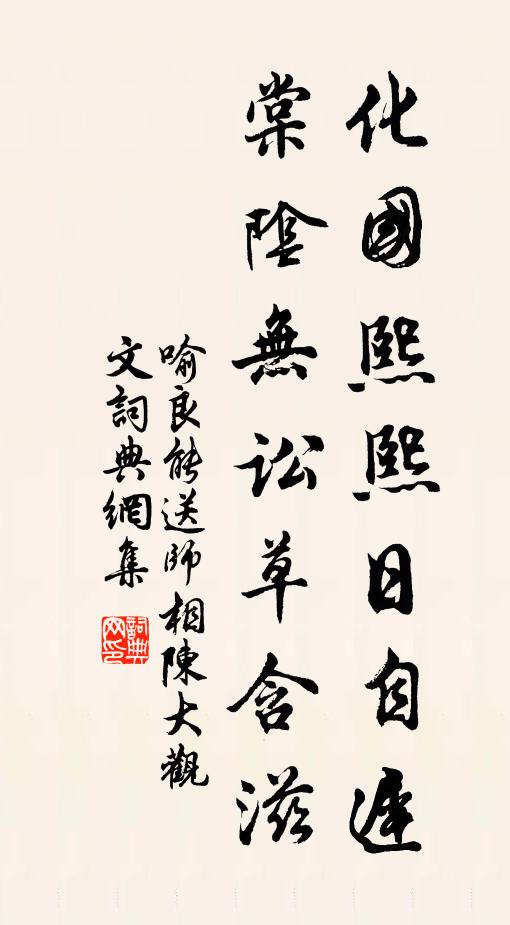 化國熙熙日自遲
棠陰無訟草含滋
喻良能送師相陳大觀
文詞典網集
詞典
网印